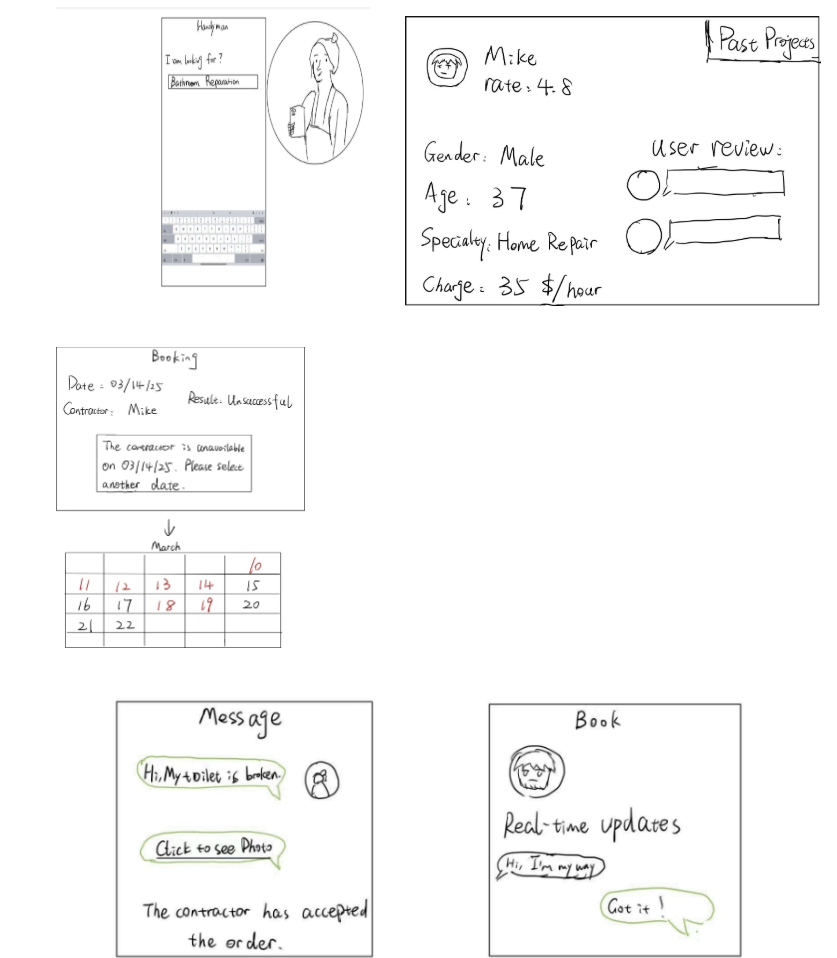 Handyman
I am looking for?
Bathroom Reparation
Past Projects
Mike
rate: 4.8
Gender: Male
Age: 37
Specialty: Home Repair
Charge: 35 $/hour
User review:
Booking
Date: 03/14/25
Contractor: Mike
Result: Unsuccessful
The contractor is unavailable
on 03/14/25. Please select
another date.
March
10
11 12 13 14 15
16 17 18 19 20
21 22
Message
Hi, My toilet is broken.
Click to see Photo
The contractor has accepted
the order.
Book
Real-time updates
Hi, I'm my way
Got it!